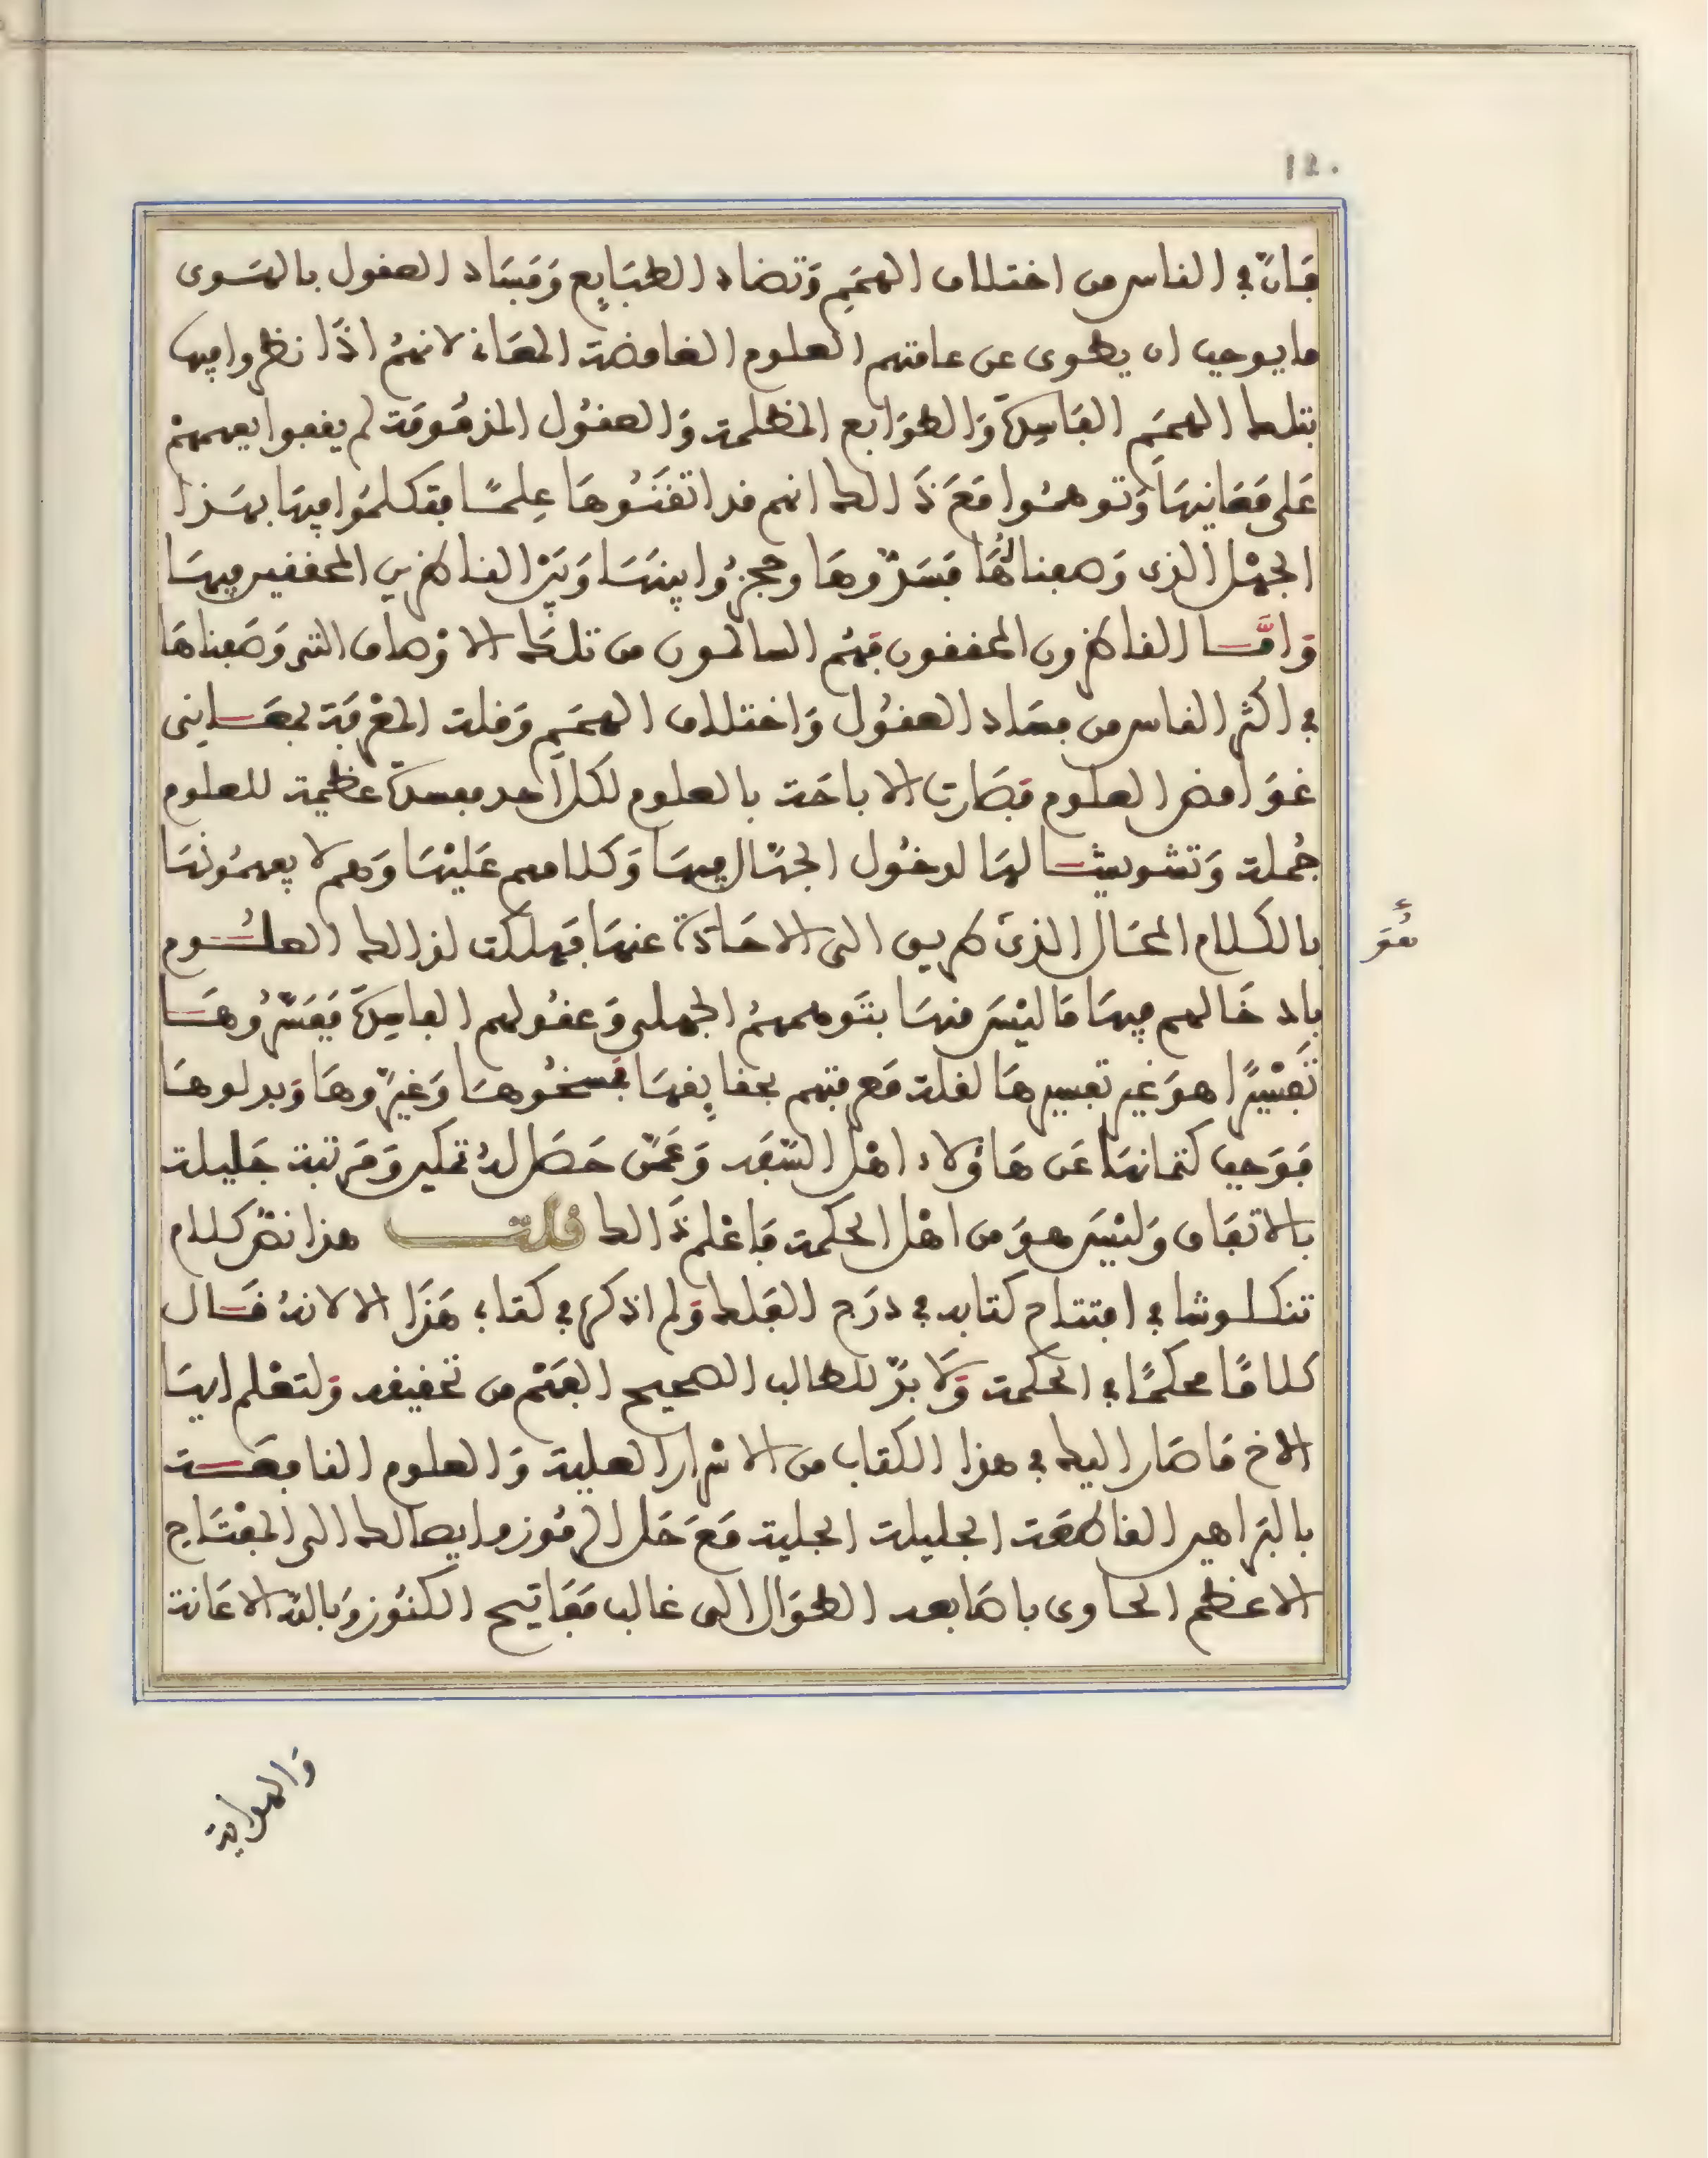 ١٢٠
فَانّ في الناس من اختلاف الهمَمِ وَتضاد الطبَايِع وَفسَاد العقول بالهَوى
ما يوجب ان يطوى عن عامتهم العلوم الغامضة المعَانى لانهمُ اذَا نظروا فيها
بتلك الهمَمِ الفَاسِدَة وَالطوَابع المظلمة وَالعقُول المذمُومَة لم يقفوا بفهمهمْ
عَلى مَعَانيهَا وَتوهمُوا مَعَ ذَالك انهم قد اتقَنُوهَا عِلمًا فتكلمُوا فيهَا بهَذا
الجهْل الذى وَصفنا لهُا فسَدّوهَا وحجزُوا بينهَا وَبَيْن الناظرين المحققين فيهَا
وَامَّا الناظرون المحققون فهُم السالمون من تلكَ الاوْصاف التى وَصَفناهَا
في اكثر الناس من فسَاد العقُول وَاختلاف الهمَمِ وَقلة المعْرفَة بمعَـانِى
غوَامض العلوم فصَارت الاباحَة بالعلوم لكل احد مفسدَة عظيمة للعلوم
جُملة وَتشويشا لهَا لدخُول الجهّال فيهَا وَكلامهم عَليْهَا وَهم لا يفهمُونهَا
بالكلام المحَال الذىَ طريق الى الاحَادَة عنهَا فهلكت لذالك العلُــوم
بادخَالهم فيهَا مَا ليْسَ منهَا بتَوهمهمُ الجهلى وَعقُولهم الفاسِدَة فَفَسّرُوهَـا
تَفسْيرًا هوَ غير تفسيرهَا لقلة مَعرفتهم بحقايِقهَا فمسخُوهَا وَغيرّوهَا وَبدلوهَا
فوَجب كتمانهَا عَن هَاؤلاء اهْل السّفَه وَعَمّن حَصَل لهُ تمكين وَمَرتبة جَليلة
بالاتفَاق وَليْسَ هوَ من اهْل الحكمة فَاعْلم ذَالك قلت هذا نصّ كلام
تنكلوشا في افتتاح كتابه في درَج الفَلك وَلم اذكره في كتابى هَذَا الا لانهُ قـال
كلامًا محكمًا في الحكمة وَلَا بدّ للطالب الصحيح الفَهْم من تحقيقه وَلتعْلم ايهَا
الاخ مَا صَار اليك في هذا الكتاب من الاسْرار العلية وَالعلوم النافعَـة
بالبَراهين القاطعَة الجليلة الجلية مَعَ حَل الرمُوز وايصالك الى المِفْتَاح
الاعظم الحاوى باصَابعه الطوَال الى غالب مَفَاتيح الكنُوز وَبالله الاعَانة
وَالهداية